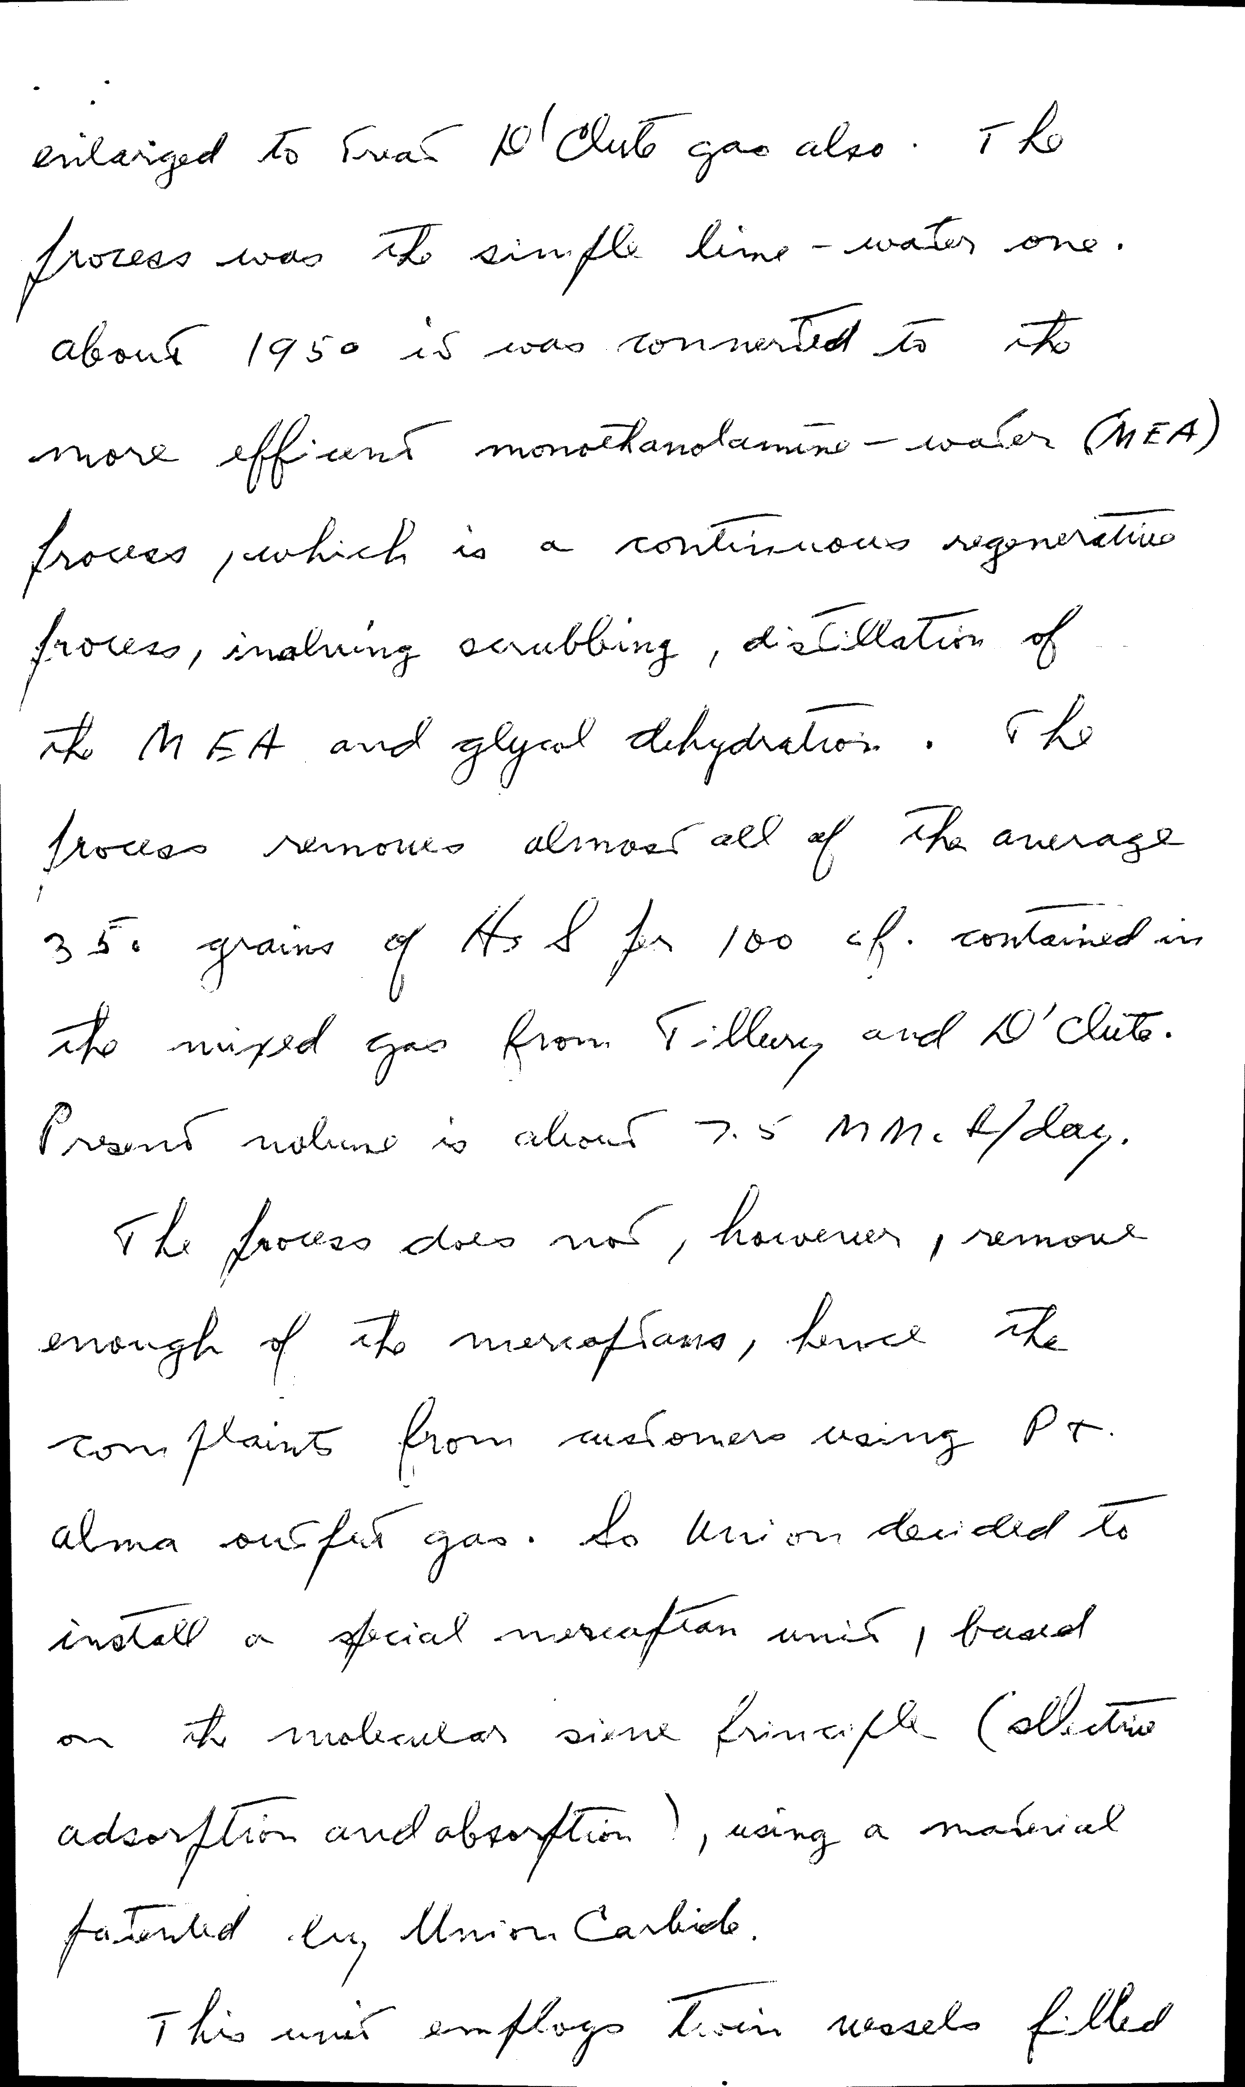 enlarged to treat D'Clute gas also. The
process was the simple lime-water one.
about 1950 it was converted to the
more efficient monoethanolamine-water (MEA)
process, which is a continuous regenerative
process, involving scrubbing, distillation of
the MEA and glycol dehydration. The
process removes almost all of the average
350 grains of H2S per 100 cf. contained in
the mixed gas from Tilbury and D'Clute.
Present volume is about 7.5 MMcf/day.
The process does not, however, remove
enough of the mercaptans, hence the
complaints from customers using Pt.
alma output gas. So Union decided to
install a special mercaptan unit, based
on the molecular sieve principle (selective
adsorption and absorption), using a material
patented by Union Carbide.
This unit employs twin vessels filled